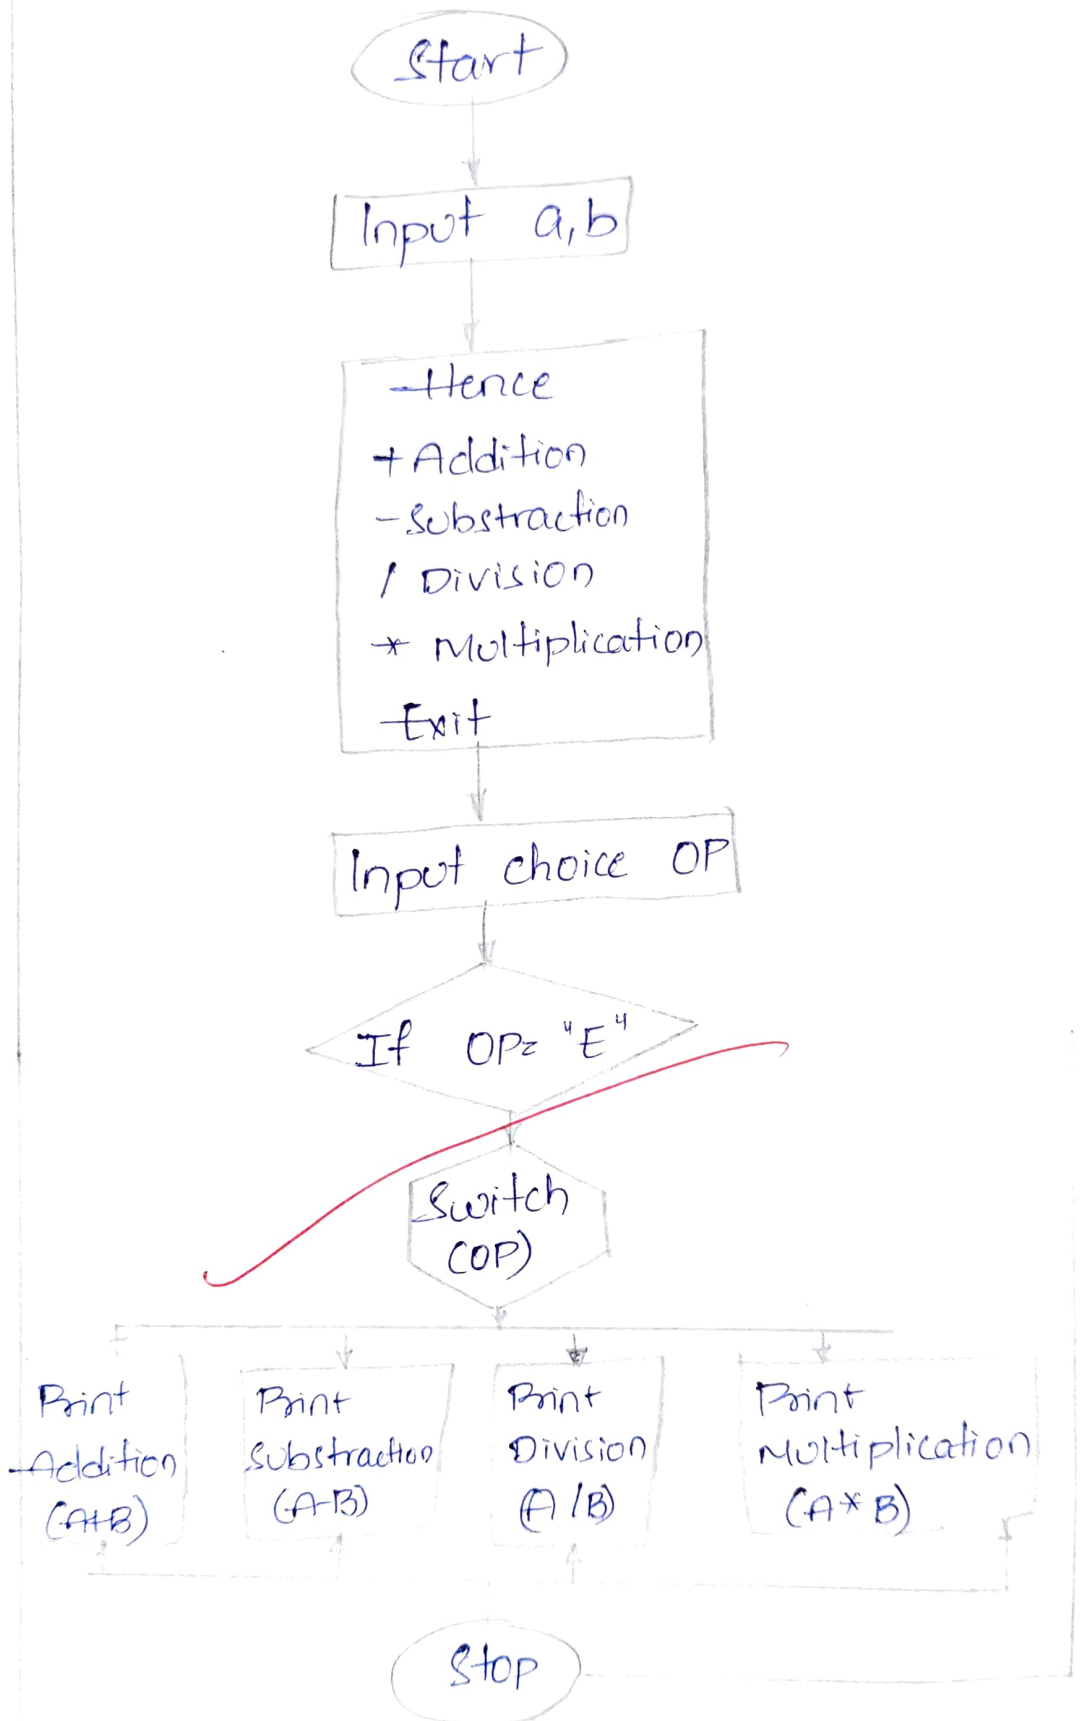 Start
Input a,b
Hence
+ Addition
- Substraction
/ Division
* Multiplication
Exit
Input choice OP
If OP= "E"
Switch
(OP)
Print
Addition
(A+B)
Print
Substraction
(A-B)
Print
Division
(A/B)
Print
Multiplication
(A*B)
Stop